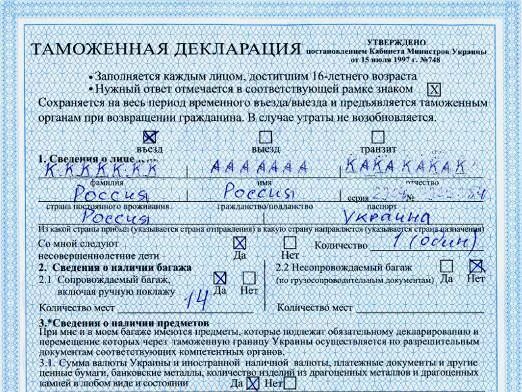 ТАМОЖЕННАЯ ДЕКЛАРАЦИЯ
УТВЕРЖДЕНО
постановлением Кабинета Министров Украины
от 15 июля 1997 г. №748
• Заполняется каждым лицом, достигшим 16-летнего возраста
• Нужный ответ отмечается в соответствующей рамке знаком X
Сохраняется на весь период временного въезда/выезда и предъявляется таможенным
органам при возвращении гражданина. В случае утраты не возобновляется.
въезд выезд транзит
1. Сведения о лице
К К К К К К К А А А А А А А КАКА КАКАК
фамилия имя отчество
Россия Россия серия №
страна постоянного проживания гражданство/подданство паспорт
Россия Украина
Из какой страны прибыл (указывается страна отправления) в какую страну направляется (указывается страна назначения)
Со мной следуют
несовершеннолетние дети Да Нет Количество 1 (один)
2. Сведения о наличии багажа
2.1 Сопровождаемый багаж,
включая ручную поклажу Да Нет
2.2 Несопровождаемый багаж
(по грузосопроводительным документам) Да Нет
Количество мест 14 Количество мест
3.*Сведения о наличии предметов
При мне и в моем багаже имеются предметы, которые подлежат обязательному декларированию и
перемещение которых через таможенную границу Украины осуществляется по разрешительным
документам соответствующих компетентных органов.
3.1. Сумма валюты Украины и иностранной наличной валюты, платежные документы и другие
ценные бумаги, банковские металлы, количество изделий из драгоценных металлов и драгоценных
камней в любом виде и состоянии Да Нет